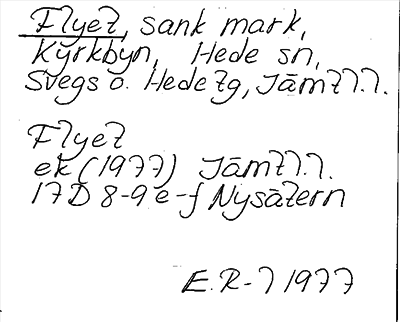 Flyet, sank mark,
Kyrkbyn, Hede sn,
Svegs o. Hede tg, Jämtl.l.
Flyet
ek (1977) Jämtl.l.
17D 8-9 e-f Nysätern
E.R-l 1977